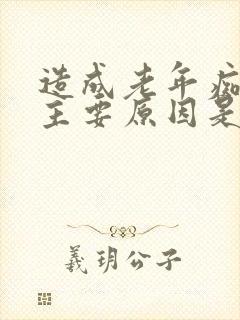 造成老年痴
主要原因是
羲玥公子